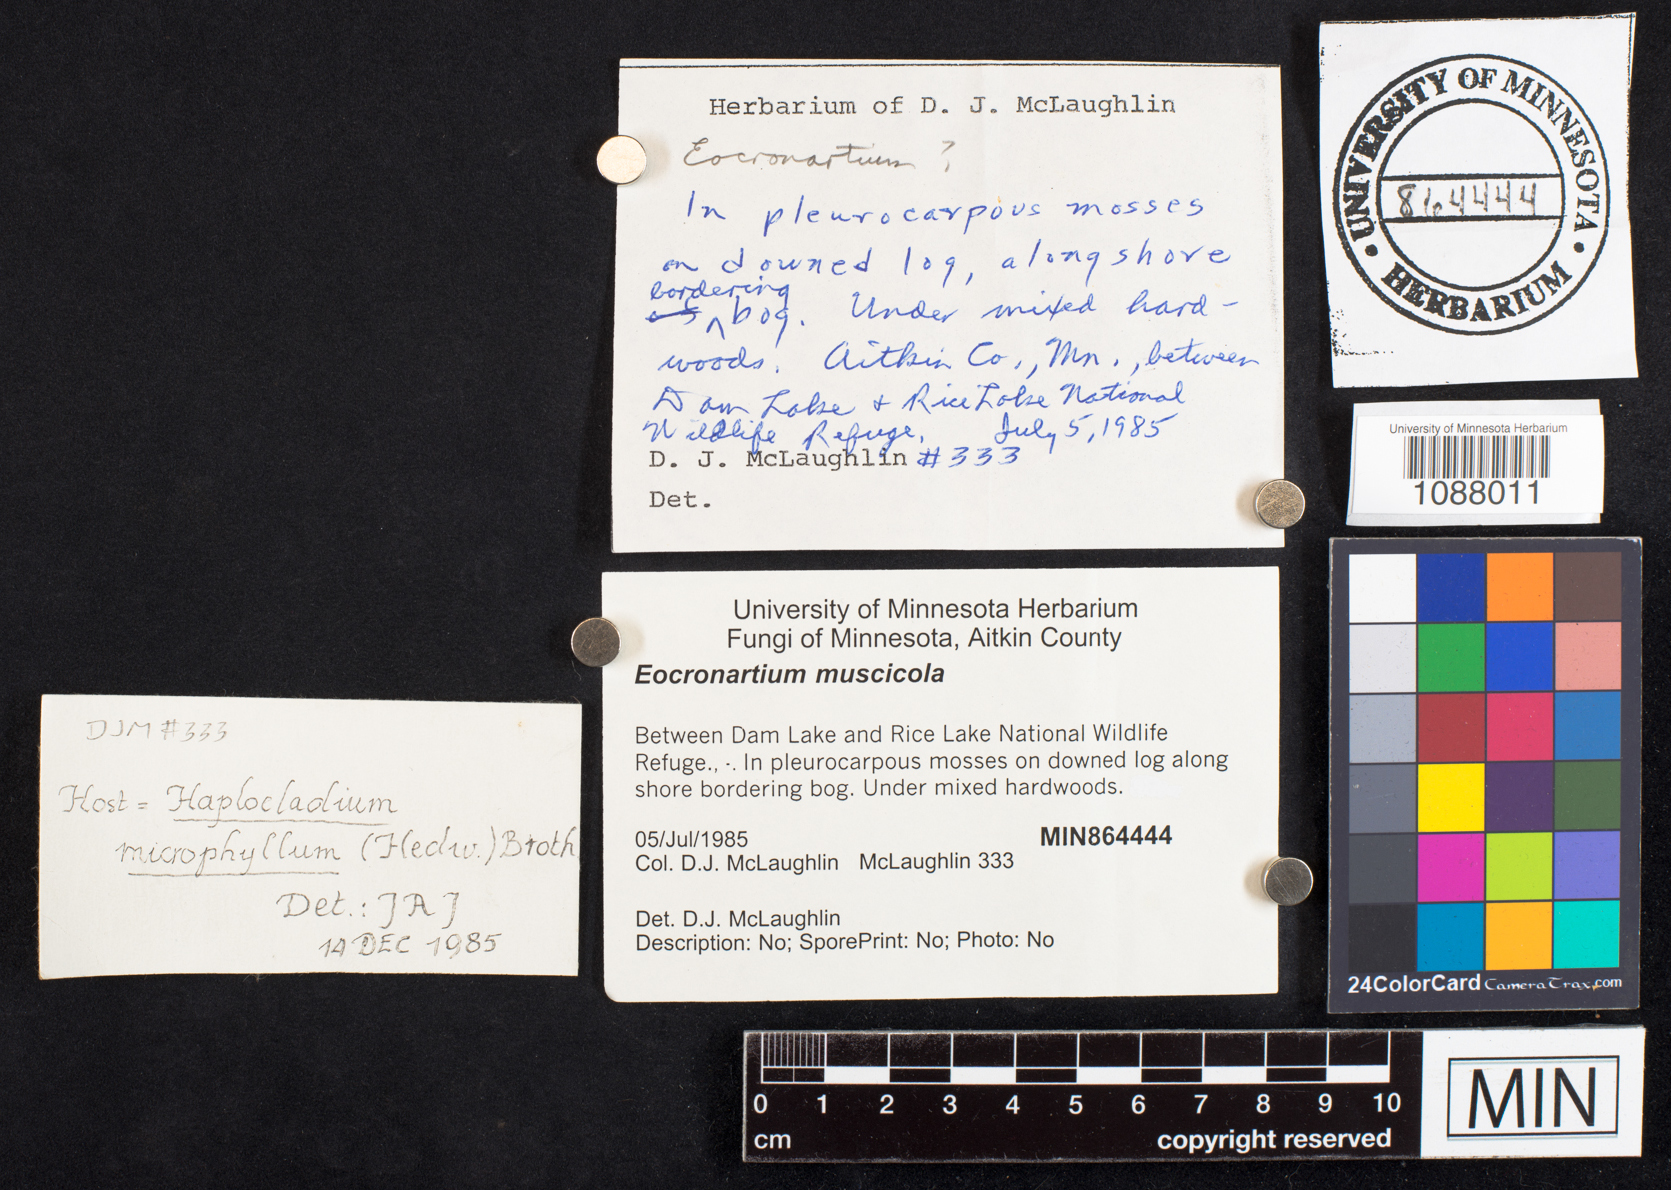 Herbarium of D. J. McLaughlin
Eocronartium ?
In pleurocarpous mosses
on downed log, along shore
bordering
bog. Under mixed hard-
woods. Aitkin Co., Mn., between
Dam Lake & Rice Lake National
Wildlife Refuge, July 5, 1985
D. J. McLaughlin #333
Det.
UNIVERSITY OF MINNESOTA
864444
• HERBARIUM •
University of Minnesota Herbarium
1088011
University of Minnesota Herbarium
Fungi of Minnesota, Aitkin County
Eocronartium muscicola
Between Dam Lake and Rice Lake National Wildlife
Refuge., -. In pleurocarpous mosses on downed log along
shore bordering bog. Under mixed hardwoods.
05/Jul/1985 MIN864444
Col. D.J. McLaughlin McLaughlin 333
Det. D.J. McLaughlin
Description: No; SporePrint: No; Photo: No
DJM #333
Host = Haplocladium
microphyllum (Hedw.) Broth
Det.: JAJ
14 DEC 1985
24ColorCard CameraTrax.com
0 1 2 3 4 5 6 7 8 9 10
cm copyright reserved
MIN